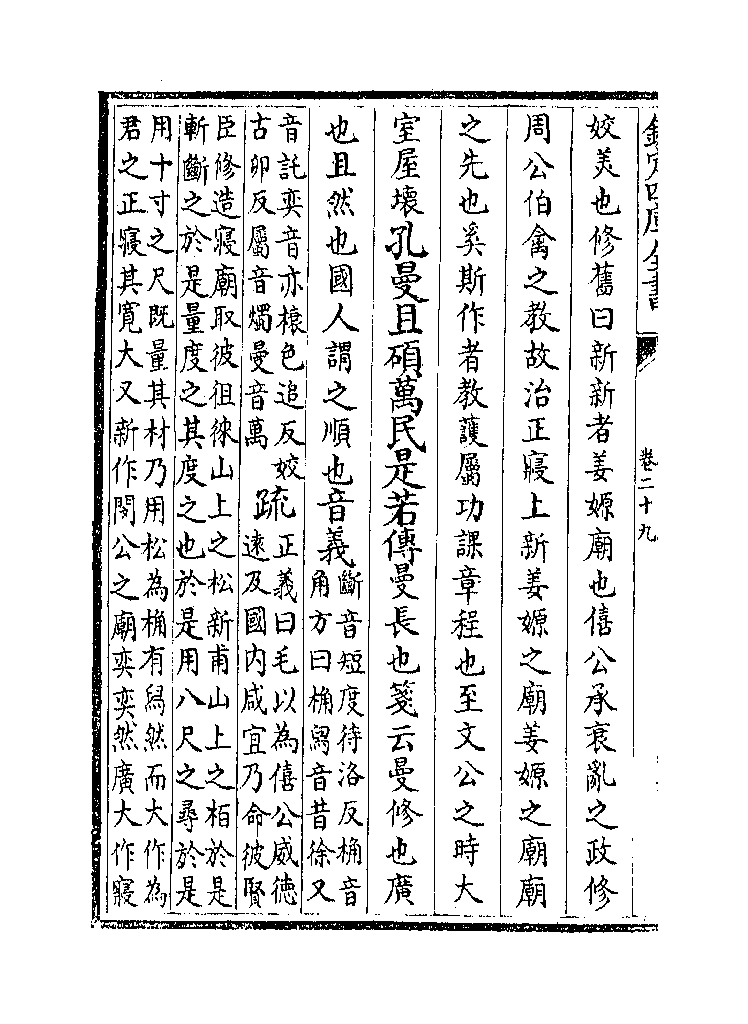 欽定四庫全書
卷二十九
姣美也修舊曰新新者姜嫄廟也僖公承衰亂之政修
周公伯禽之教故治正寢上新姜嫄之廟姜嫄之廟廟
之先也奚斯作者教護屬功課章程也至文公之時大
室屋壞孔曼且碩萬民是若傳曼長也箋云曼修也廣
也且然也國人謂之順也音義
斷音短度待洛反桷音
角方曰桷舄音昔徐又
音託奕音亦榱色追反姣
古卯反屬音燭曼音萬
疏
正義曰毛以為僖公威徳
逺及國内咸宜乃命彼賢
臣修造寢廟取彼徂徠山上之松新甫山上之柏於是
斬斷之於是量度之其度之也於是用八尺之尋於是
用十寸之尺既量其材乃用松為桷有舄然而大作為
君之正寢其寛大又新作閔公之廟奕奕然廣大作寢